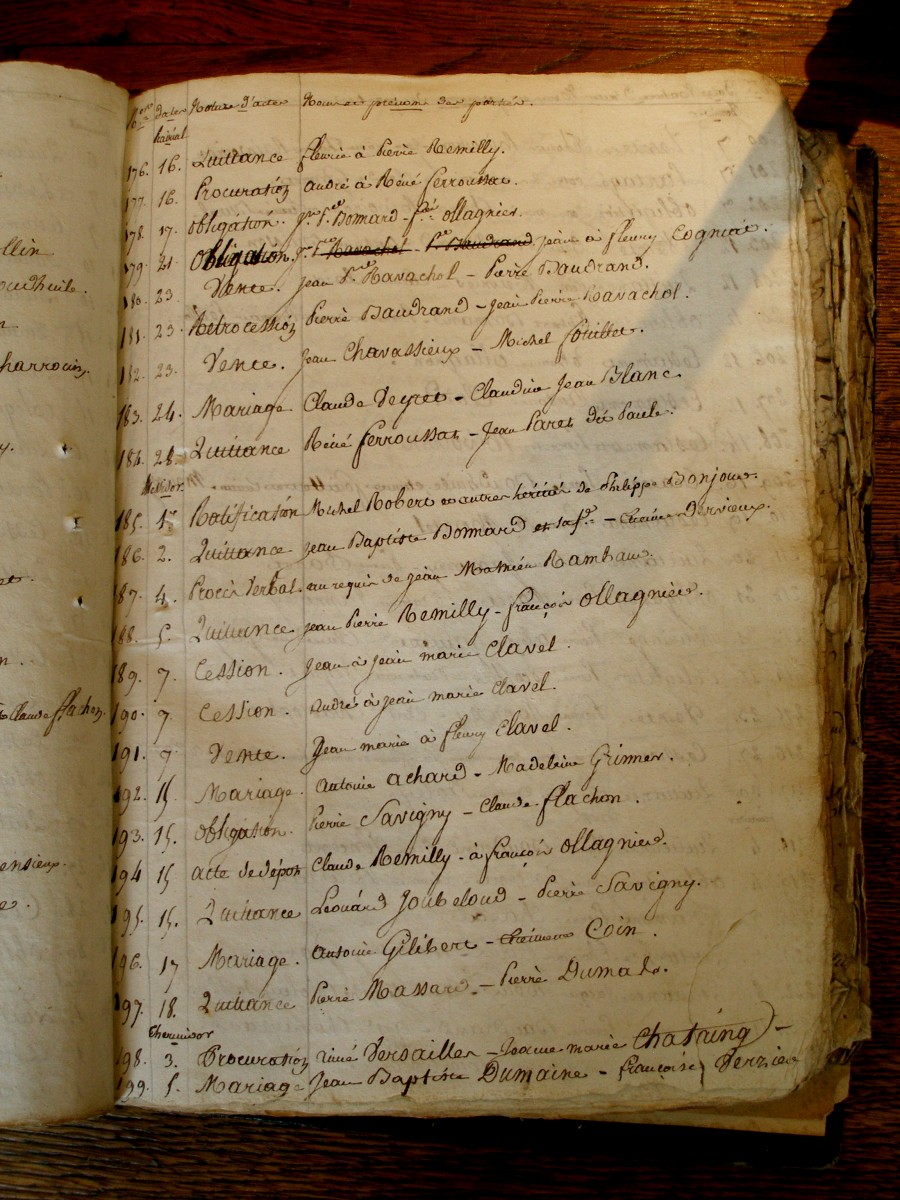 llin
oudhuile.
n
harrocin.
n.
Claude flachon.
ensieux.
e.
N.ros dates Nature d'actes Noms et prénoms des parties.
prairial
176. 16. Quittance fleurie à Pierre Remilly.
177. 16. Procuration André à Réné ferroussat.
178. 17. obligation. Bonnard - ollagnier.
179. 21. Obligation. Ravachol Baudrand. Jean à fleury Cogniat.
180. 23. Vente. Jean Ravachol - Pierre Baudrand.
181. 23. Rétrocession Pierre Baudrand - Jean Pierre Ravachol.
182. 23. Vente. Jean Chavassieux - Michel fouillet.
183. 24. Mariage Claude Veyret - Claudine Jean Blanc.
184. 28. Quittance Réné ferroussat - Jean Paret dit Paule.
Messidor
185. 1er Ratification Michel Robert et autres héritiers de Philippe Bonjour.
186. 2. Quittance Jean Baptiste Bonnard et sa fe - Dervieux.
187. 4. Procès Verbal. au requis de Jean Mathieu Rambaud.
188. 5. Quittance Jean Pierre Remilly - françois ollagnier.
189. 7. Cession. Jean à jean marie Clavel.
190. 7. Cession. André à jean marie Clavel.
191. 7 Vente. Jean marie à fleury Clavel.
192. 15 Mariage. Antoine achard - Madeleine Grimner.
193. 15. obligation. Pierre Savigny - Claude flachon.
194 15 acte de dépôt Claude Remilly - à françois ollagnier.
195. 15. Quittance Léonard Joubeloud - Pierre Savigny.
196. 17 Mariage. Antoine Gilibert - Coin.
197. 18. Quittance Pierre Massard - Pierre Dumas.
thermidor
198. 3. Procuration Aimé Versailler - Jeanne marie Chataing
199. 5. Mariage Jean Baptiste Dumaine - françoise Verzier